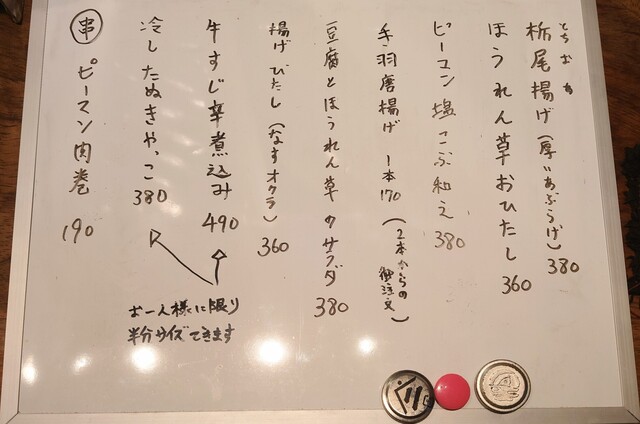 とちおあ
栃尾揚げ(厚いあぶらげ)380
ほうれん草おひたし 360
ピーマン塩こぶ和え 380
手羽唐揚げ 1本170(2本からの御注文)
豆腐とほうれん草のサラダ 380
揚げびたし(なすオクラ)360
牛すじ辛煮込み 490
冷したぬきやっこ 380
お一人様に限り
半分サイズできます
串 ピーマン肉巻 190